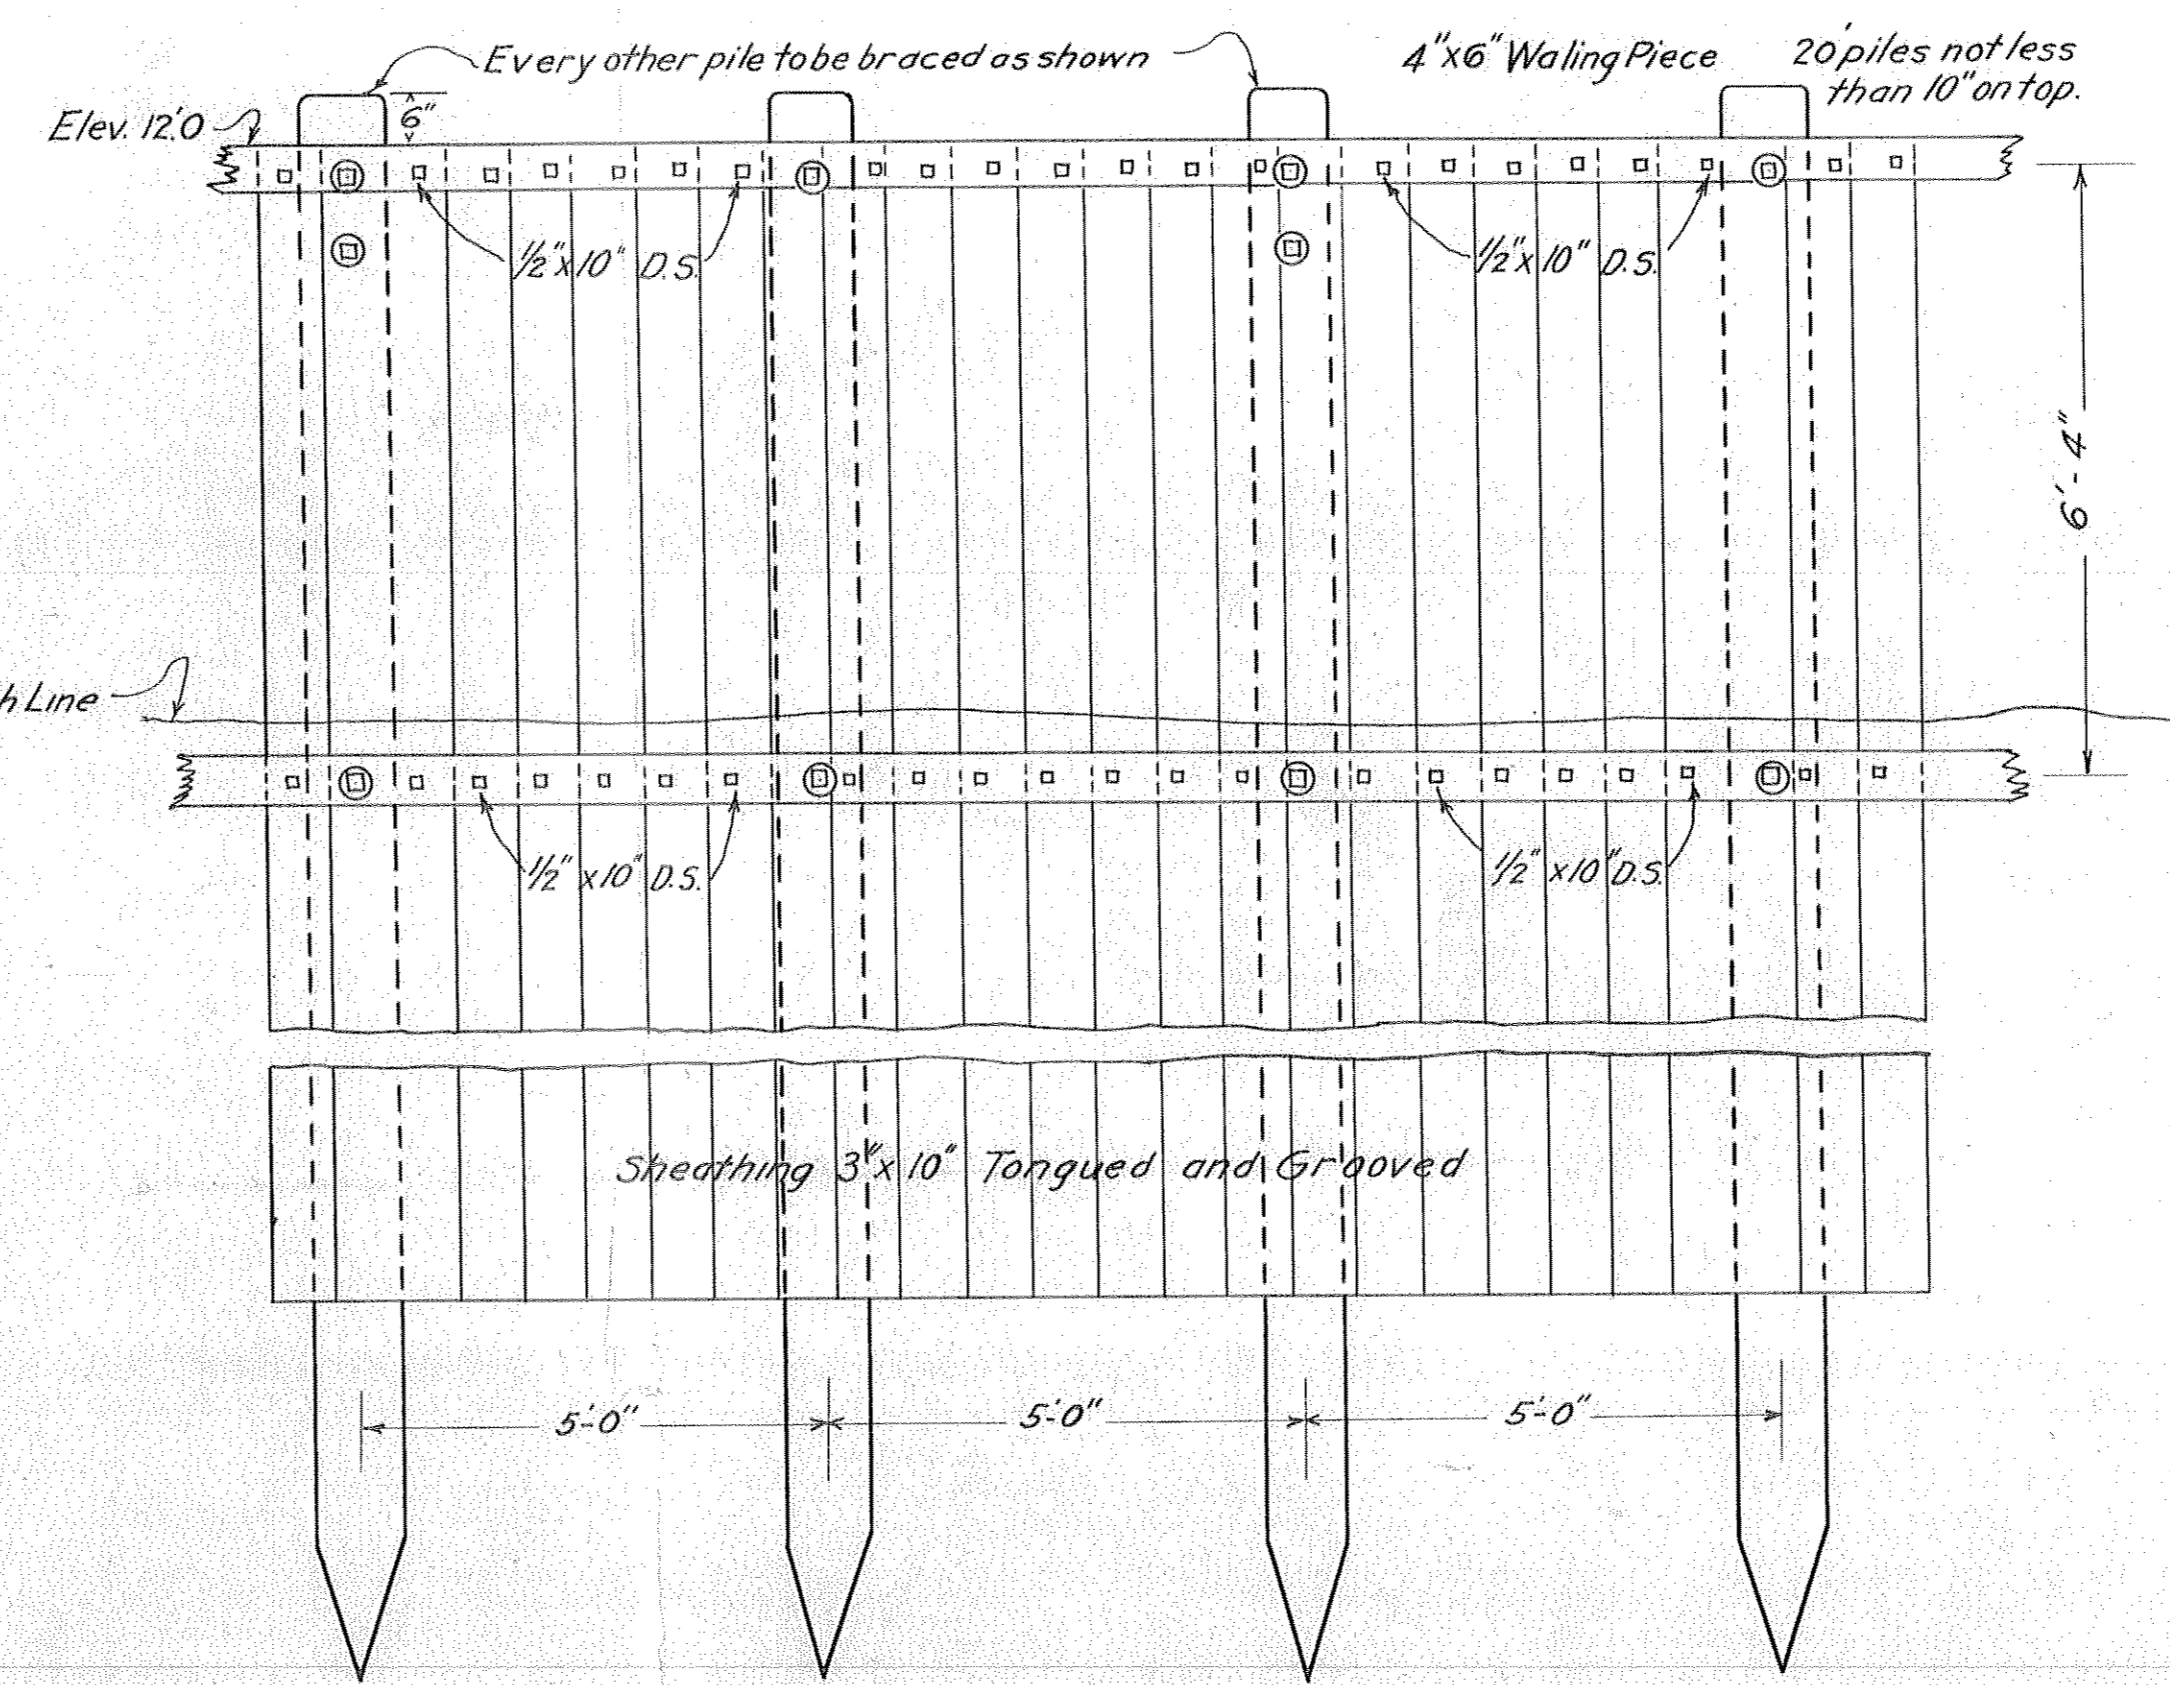 Every other pile to be braced as shown
4"x6" Waling Piece
20' piles not less
than 10" on top.
Elev. 12'.0
6"
1/2" x 10" D.S.
1/2" x 10" D.S.
6'-4"
h Line
1/2" x 10" D.S.
1/2" x 10" D.S.
Sheathing 3" x 10" Tongued and Grooved
5'-0"
5'-0"
5'-0"